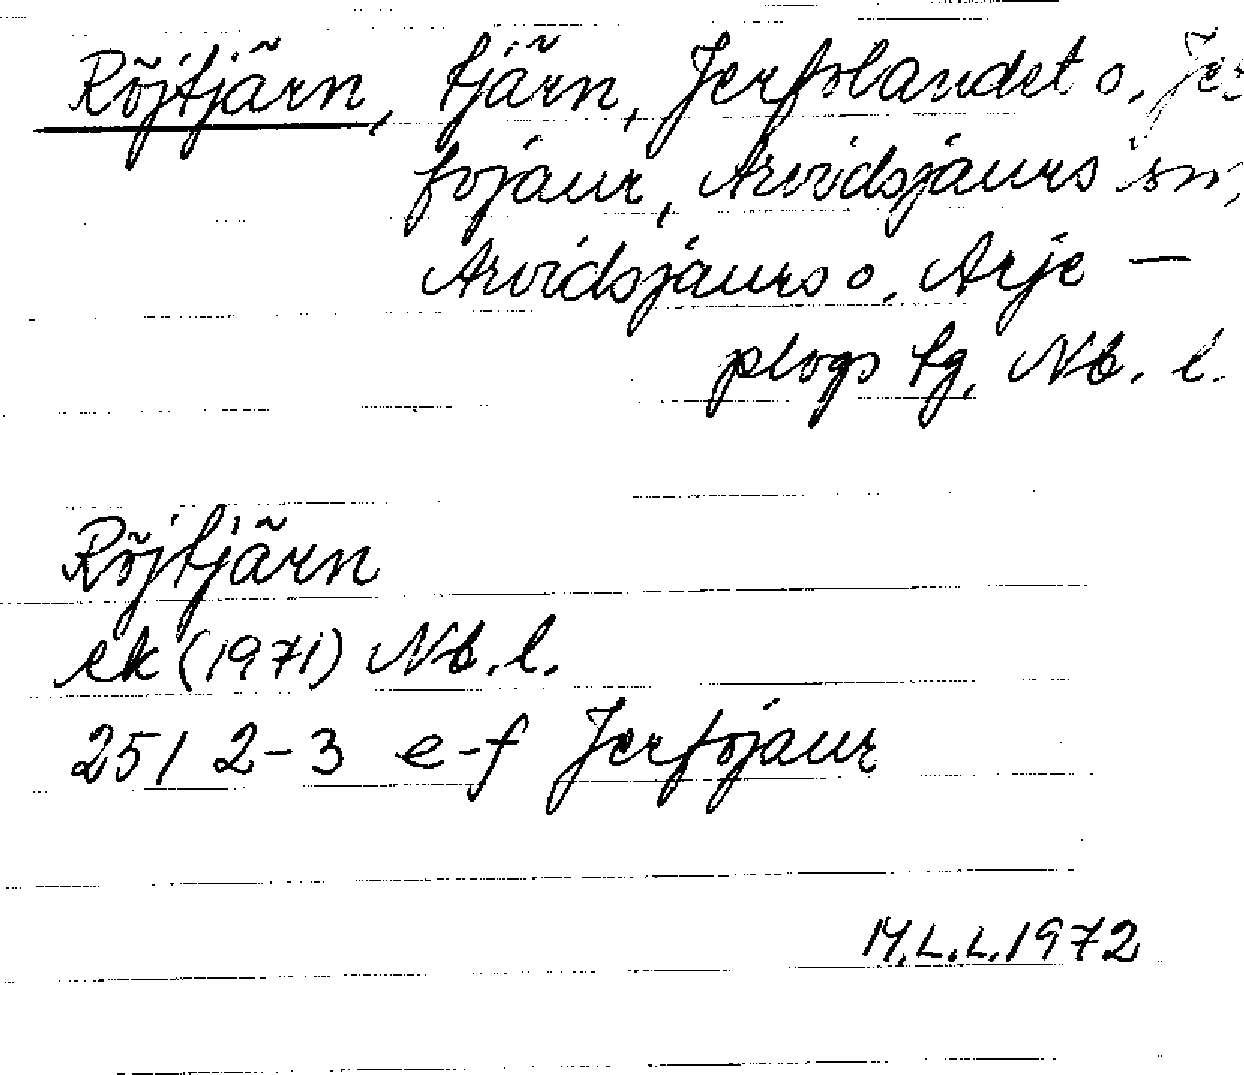 Röjtjärn, tjärn, Jerfolandet o. Jer-
fojaur, Arvidsjaurs sn,
Arvidsjaurs o. Arje-
plogs tg, Nb. l.
Röjtjärn
ek (1971) Nb. l.
251 2-3 e-f Jerfojaur
M.L.L. 1972